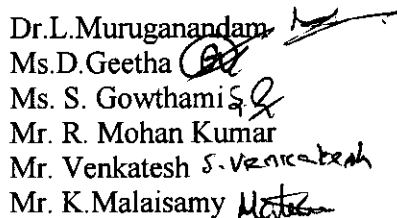 Dr.L.Muruganandam
Ms.D.Geetha
Ms. S. Gowthami
Mr. R. Mohan Kumar
Mr. Venkatesh S. Venkatesh
Mr. K.Malaisamy